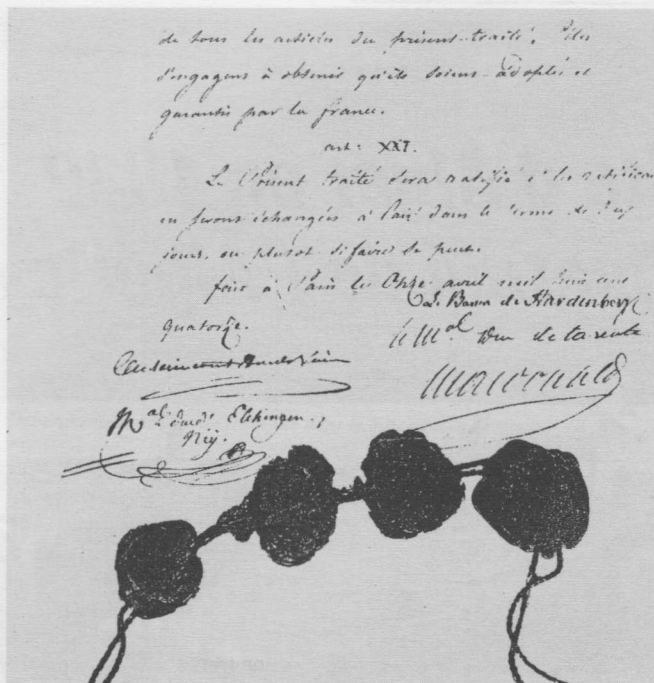 de tous les articles du présent traité. Ils
s'engagens à obtenir qu'ils soient adoptés et
garantis par la france.
art: XXI.
Le Présent traité sera ratifié et les
en seront échangées à Paris dans le terme de
jours, ou plutot si faire se peut.
fait à Paris le Onze avril mil huit cent
quatorze.
Baron de Hardenberg
le Mal. Duc de tarente
Macdonald
Mal. duc d'Elchingen.
Ney.